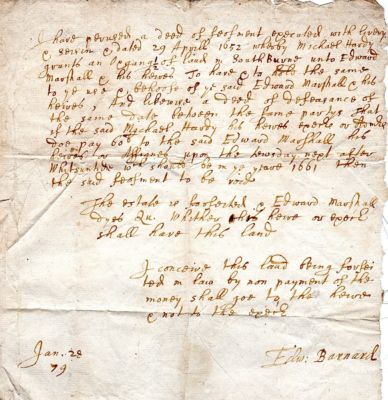 I have perused a deed of feofment executed with livery
& seisin & dated 29 Aprill 1652 wherby Michael Hardy
grants an Oxgang ½ of land in South Burne unto Edward
Marshall & his heires To have & to hold the same
to ye use & behoofe of ye said Edward Marshall & his
heires, And likewise a deed of defeasance of
the same date between the same partys that
if the said Michael Hardy his heires execrs or
doe pay 60 to the said Edward Marshall his
heires or Assignes upon the tewsday next after
Whitsunday wch should be in ye yeare 1661 then
the said feofment to be void
The estate is forfeited & Edward Marshall
dyes Qu. Whither his heire or execrs
shall have this land
I conceive this land being forfei
ted in law by non payment of the
money shall goe to the heire
& not to the execrs
Jan. 28
79
Edw: Barnard